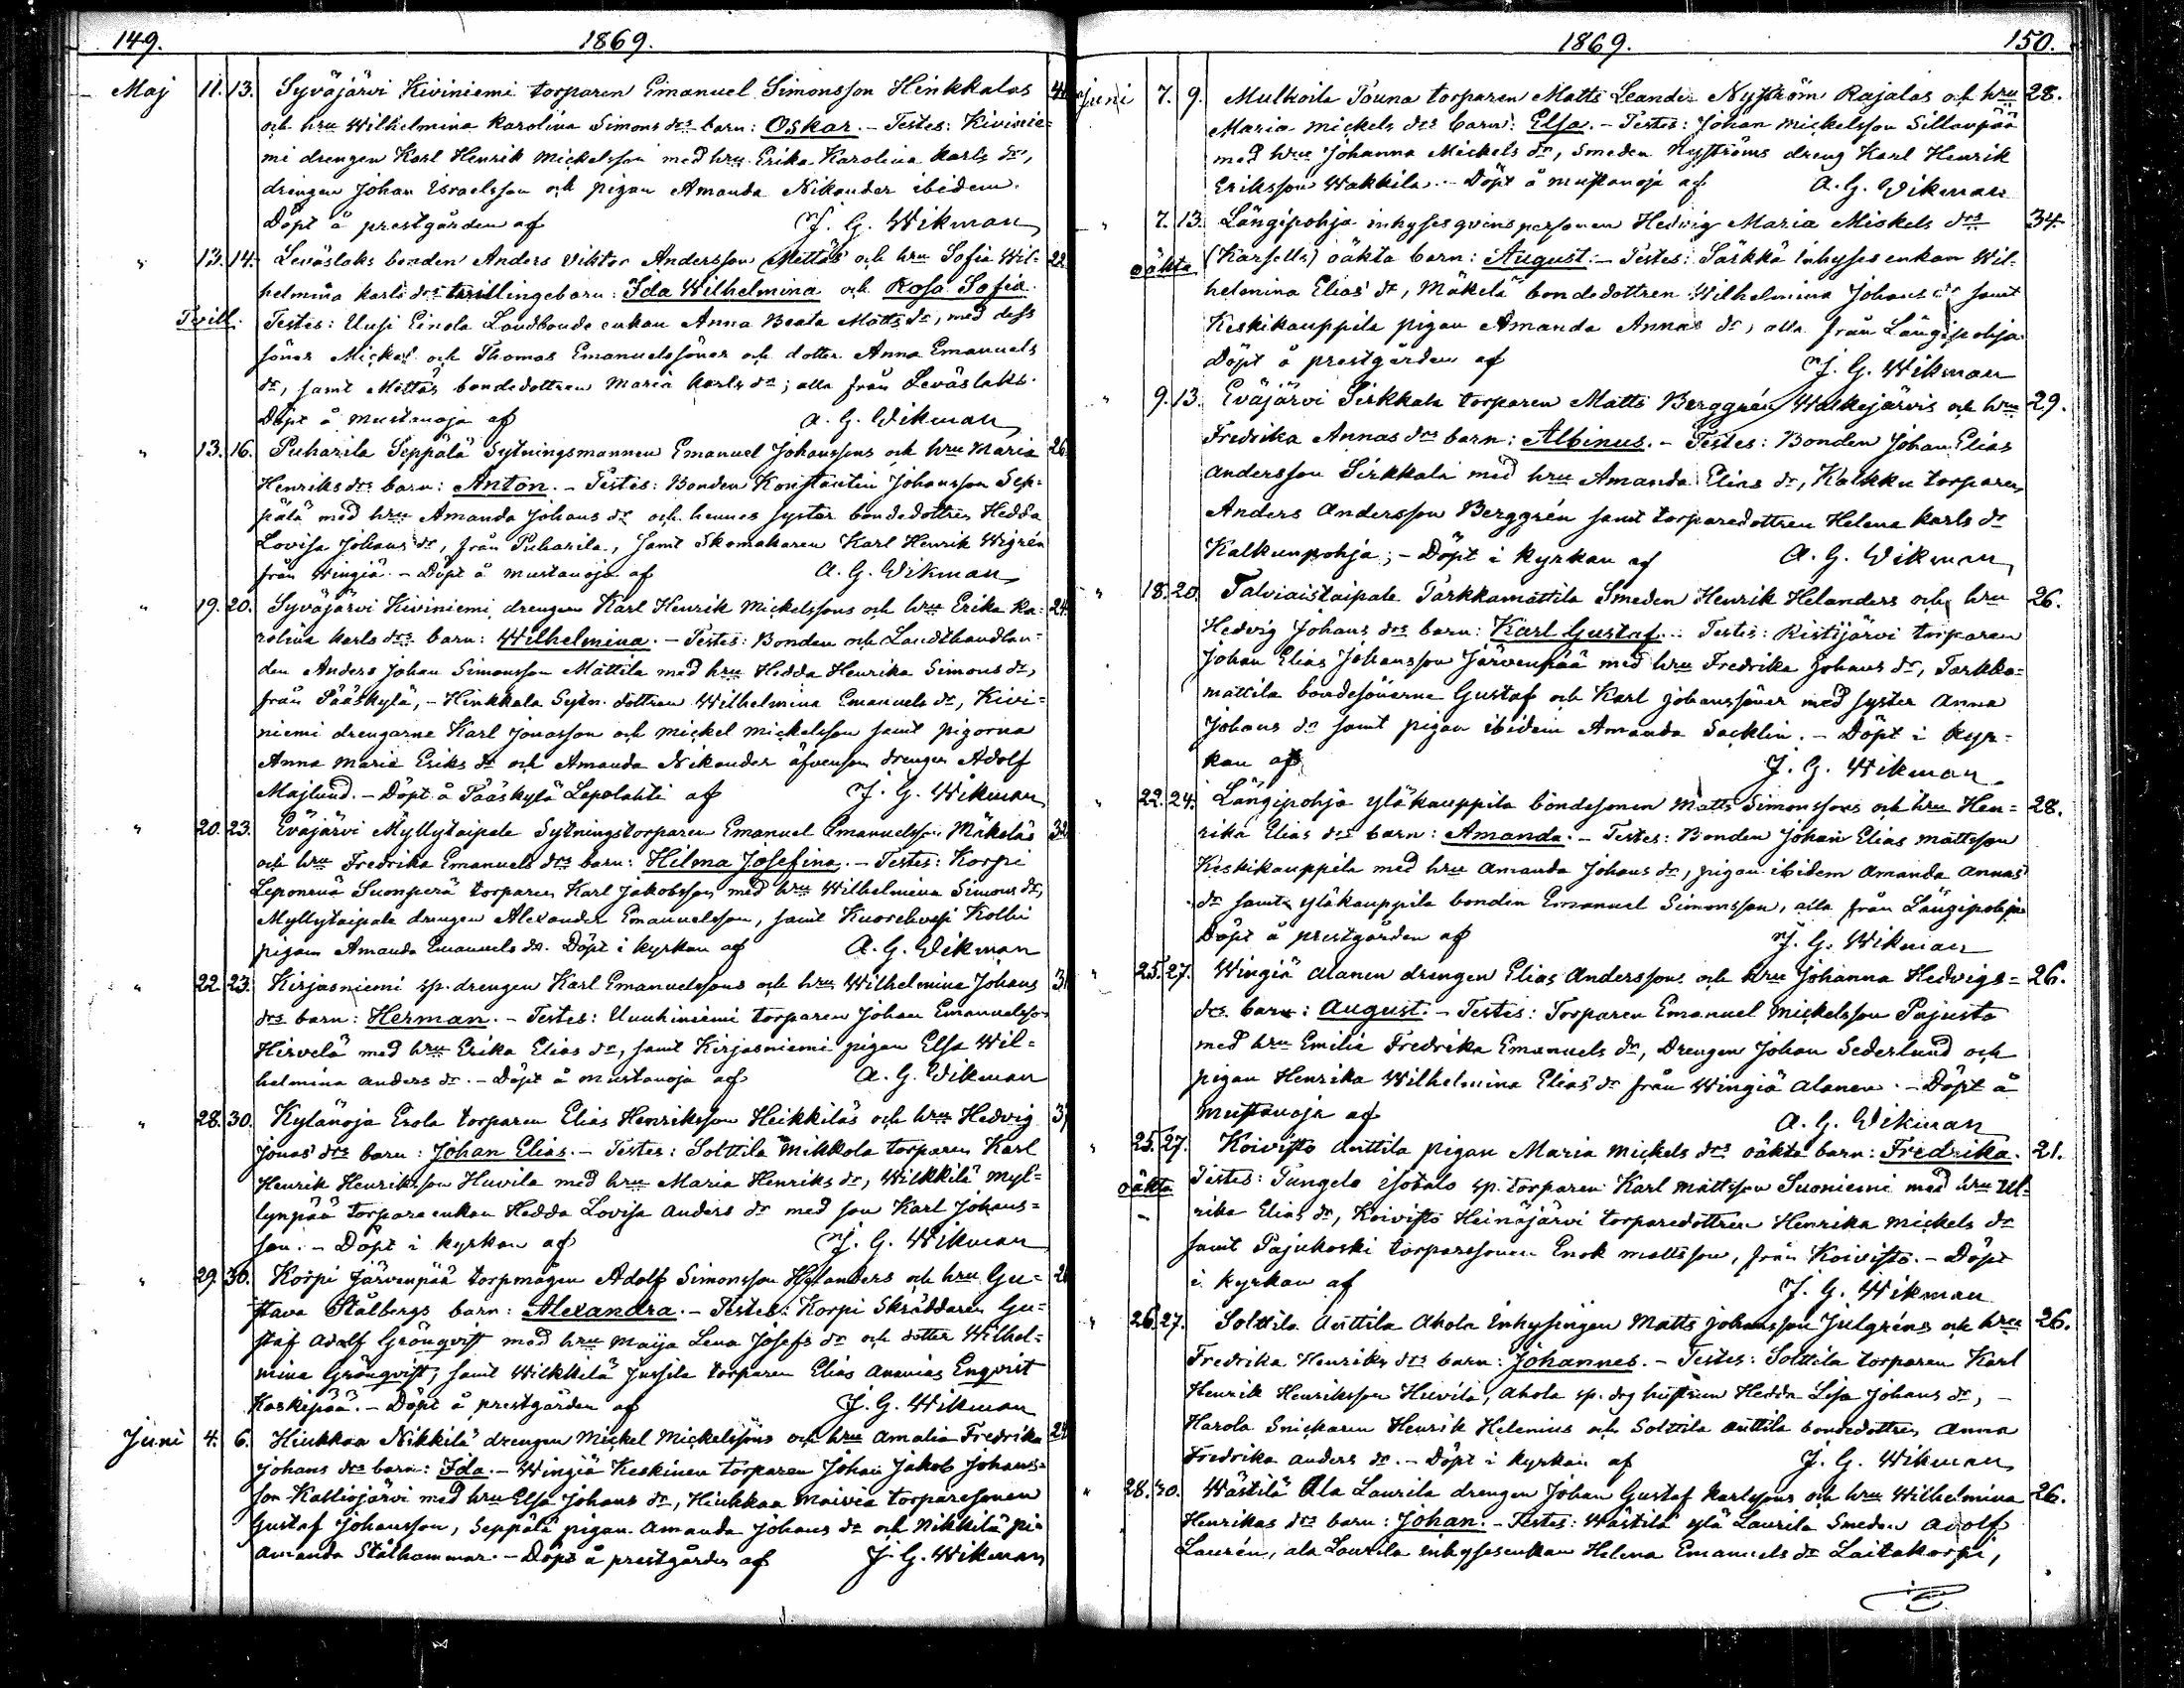 149. 1869.
Maj 11. 13. Syväjärvi Kiviniemi torparen Emanuel Simonsson Hinkkalas
och hru Wilhelmina Karolina Simons drs barn: Oskar. - Testes: Kivinie=
mi drengen Karl Henrik Mickelsson med hru Erika Karolina Karls dr,
drengen Johan Israelsson och pigan Amanda Nikander ibidem.
Döpt å prestgården af J. G. Wikman
" 13. 14. Leväslaks bonden Anders Viktor Andersson Mettäs och hru Sofia Wil= 22.
helmina Karls drs tvillingebarn: Ida Wilhelmina och Rosa Sofia.
Tvill. Testes: Uusi Einola Landbonde enkan Anna Beata Matts dr, med dess
söner Mickel och Thomas Emanuelssöner och dotter Anna Emanuels
dr, samt Mettäs bondedottren Maria Karls dr; alla från Leväslaks.
Döpt å Mustanoja af A. G. Wikman
" 13. 16. Puharila Seppälä Sytningsmannen Emanuel Johanssons och hru Maria 26
Henriks drs barn: Anton. - Testes: Bonden Konstantin Johansson Sep=
pälä med hru Amanda Johans dr och hennes syster bondedottren Hedda
Lovisa Johans dr, från Puharila, samt Skomakaren Karl Henrik Wigrén
från Wingiä. - Döpt å Mustanoja af A. G. Wikman
" 19. 20. Syväjärvi Kiviniemi drengen Karl Henrik Mickelssons och hru Erika Ka= 24.
rolina Karls drs barn: Wilhelmina. - Testes: Bonden och Landthandlan=
den Anders Johan Simonsson Mattila med hru Hedda Henrika Simons dr,
från Pääskylä, - Hinkkala Sytn. dottren Wilhelmina Emanuels dr, Kivi=
niemi drengarne Karl Jonasson och Mickel Mickelsson samt pigorna
Anna Maria Eriks dr och Amanda Nikander äfvensom drengen Adolf
Majlund. - Döpt å Pääskylä Lepolahti af J. G. Wikman
" 20. 23. Eväjärvi Myllytaipale Sytningstorparen Emanuel Emanuelsson Mäkeläs 32
och hru Fredrika Emanuels drs barn: Hilma Josefina. - Testes: Korpi
Leponevä Suonperä torparen Karl Jakobsson med hru Wilhelmina Simons dr,
Myllytaipale drengen Alexander Emanuelsson, samt Kuorehvesi Kolhi
pigan Amanda Emanuels dr. Döpt i kyrkan af A. G. Wikman
" 22 23. Kirjasniemi sp. drengen Karl Emanuelssons och hru Wilhelmina Johans
drs barn: Herman. - Testes: Unukiniemi torparen Johan Emanuelsson
Hirvelä med hru Erika Elias dr, samt Kirjasniemi pigan Elsa Wil=
helmina Anders dr. - Döpt å Mustanoja af A. G. Wikman
" 28. 30. Kylänoja Erola torparen Elias Henriksson Heikkiläs och hru Hedvig
Jonas drs barn: Johan Elias. - Testes: Solttila Mikkola torparen Karl
Henrik Henriksson Huvila med hru Maria Henriks dr, Wilkkilä Myl=
lynpää torpareenkan Hedda Lovisa Anders dr med son Karl Johans=
son. - Döpt i kyrkan af J. G. Wikman
" 29. 30. Korpi Järvenpää torpmågen Adolf Simonsson Hylanders och hru Gu=
stava Stålbergs barn: Alexandra. - Testes: Korpi Skräddaren Gu=
staf Adolf Grönqvist med hru Maija Lena Josefs dr och dotter Wilhel=
mina Grönqvist, samt Wilkkilä Jussila torparen Elias Ananias Enqvist
Koskipää. - Döpt å prestgården af J. G. Wikman
Juni 4. 6. Hinkkaa Nikkilä drengen Mickel Mickelssons och hru Amalia Fredrika
Johans drs barn: Ida. - Wingiä Keskinen torparen Johan Jakob Johans=
son Kalliojärvi med hru Elsa Johans dr, Hinkkaa Moivia torparesonen
Gustaf Johansson, Seppälä pigan Amanda Johans dr och Nikkilä pi=
Amanda Stålhammar. - Döpt å prestgården af J. G. Wikman
1869. 150.
Juni 7. 9. Mulkoila Touna torparen Matts Leander Nyström Rajalas och hru 28.
Maria Mickels drs barn: Elsa. - Testes: Johan Mickelsson Sillanpää
med hru Johanna Mickels dr, Smeden Nyströms dreng Karl Henrik
Eriksson Wakkila. - Döpt å Mustanoja af A. G. Wikman
" 7. 13. Längipohja inhyses qvinspersonen Hedvig Maria Mickels drs 34.
oäkta (Karsells) oäkta barn: August. - Testes: Särkkä inhyses enkan Wil=
helmina Elias dr, Mäkelä bondedottren Wilhelmina Johans dr samt
Keskikauppila pigan Amanda Annas dr, alla från Längipohja
Döpt å prestgården af J. G. Wikman
" 9. 13. Eväjärvi Sirkkala torparen Matts Berggrén Walkejärvis och hru 29.
Fredrika Annas drs barn: Albinus. - Testes: Bonden Johan Elias
Andersson Sirkkala med hru Amanda Elias dr, Kalkku torparen
Anders Andersson Berggrén samt torparedottren Helena Karls dr
Kalkunpohja; - Döpt i kyrkan af A. G. Wikman
" 18. 20. Talviaistaipale Parkkamattila Smeden Henrik Helanders och hru 26.
Hedvig Johans drs barn: Karl Gustaf. - Testes: Ristijärvi torparen
Johan Elias Johansson Järvenpää med hru Fredrika Johans dr, Parkka=
mattila bondesönerne Gustaf och Karl Johanssöner med syster Anna
Johans dr samt pigan ibidem Amanda Sacklin. - Döpt i kyr=
kan af J. G. Wikman.
" 22. 24. Längipohja Yläkauppila bondesonen Matts Simonssons och hru Hen= 28.
rika Elias drs barn: Amanda. - Testes: Bonden Johan Elias Mattsson
Keskikauppila med hru Amanda Johans dr, pigan ibidem Amanda Annas
dr samt Yläkauppila bonden Emanuel Simonsson, alla från Längipohja
Döpt å prestgården af J. G. Wikman
" 25. 27. Wingiä Alanen drengen Elias Anderssons och hru Johanna Hedvigs= 26.
drs barn: August. - Testes: Torparen Emanuel Mickelsson Pajusto
med hru Emilia Fredrika Emanuels dr, Drengen Johan Sederlund och
pigan Henrika Wilhelmina Elias dr från Wingiä Alanen. - Döpt å
Mustanoja af A. G. Wikman
" 25. 27. Koivisto Anttila pigan Maria Mickels drs oäkta barn: Fredrika. 21.
oäkta Testes: Pungelo Isotalo sp. torparen Karl Mattsson Suoniemi med hru Ul=
rika Elias dr, Koivisto Heinäjärvi torparedottren Henrika Mickels dr
samt Pajukoski torparesonen Enok Mattsson, från Koivisto. - Döpt
i kyrkan af J. G. Wikman
" 26. 27. Solttila Anttila Ahola Inhysingen Matts Johansson Julgréns och hru 26.
Fredrika Henriks drs barn: Johannes. - Testes: Solttila torparen Karl
Henrik Henriksson Huvila, Ahola sp. drg hustrun Hedda Lisa Johans dr, -
Harola Snickaren Henrik Helenius och Solttila Anttila bondedottren Anna
Fredrika Anders dr. - Döpt i kyrkan af J. G. Wikman
" 28. 30. Wästilä Ala Laurila drengen Johan Gustaf Karlssons och hru Wilhelmina 26.
Henrikas drs barn: Johan. - Testes: Wästilä Ylä Laurila Smeden Adolf
Laurén, Ala Laurila inhysesenkan Helena Emanuels dr Laitakorpi,